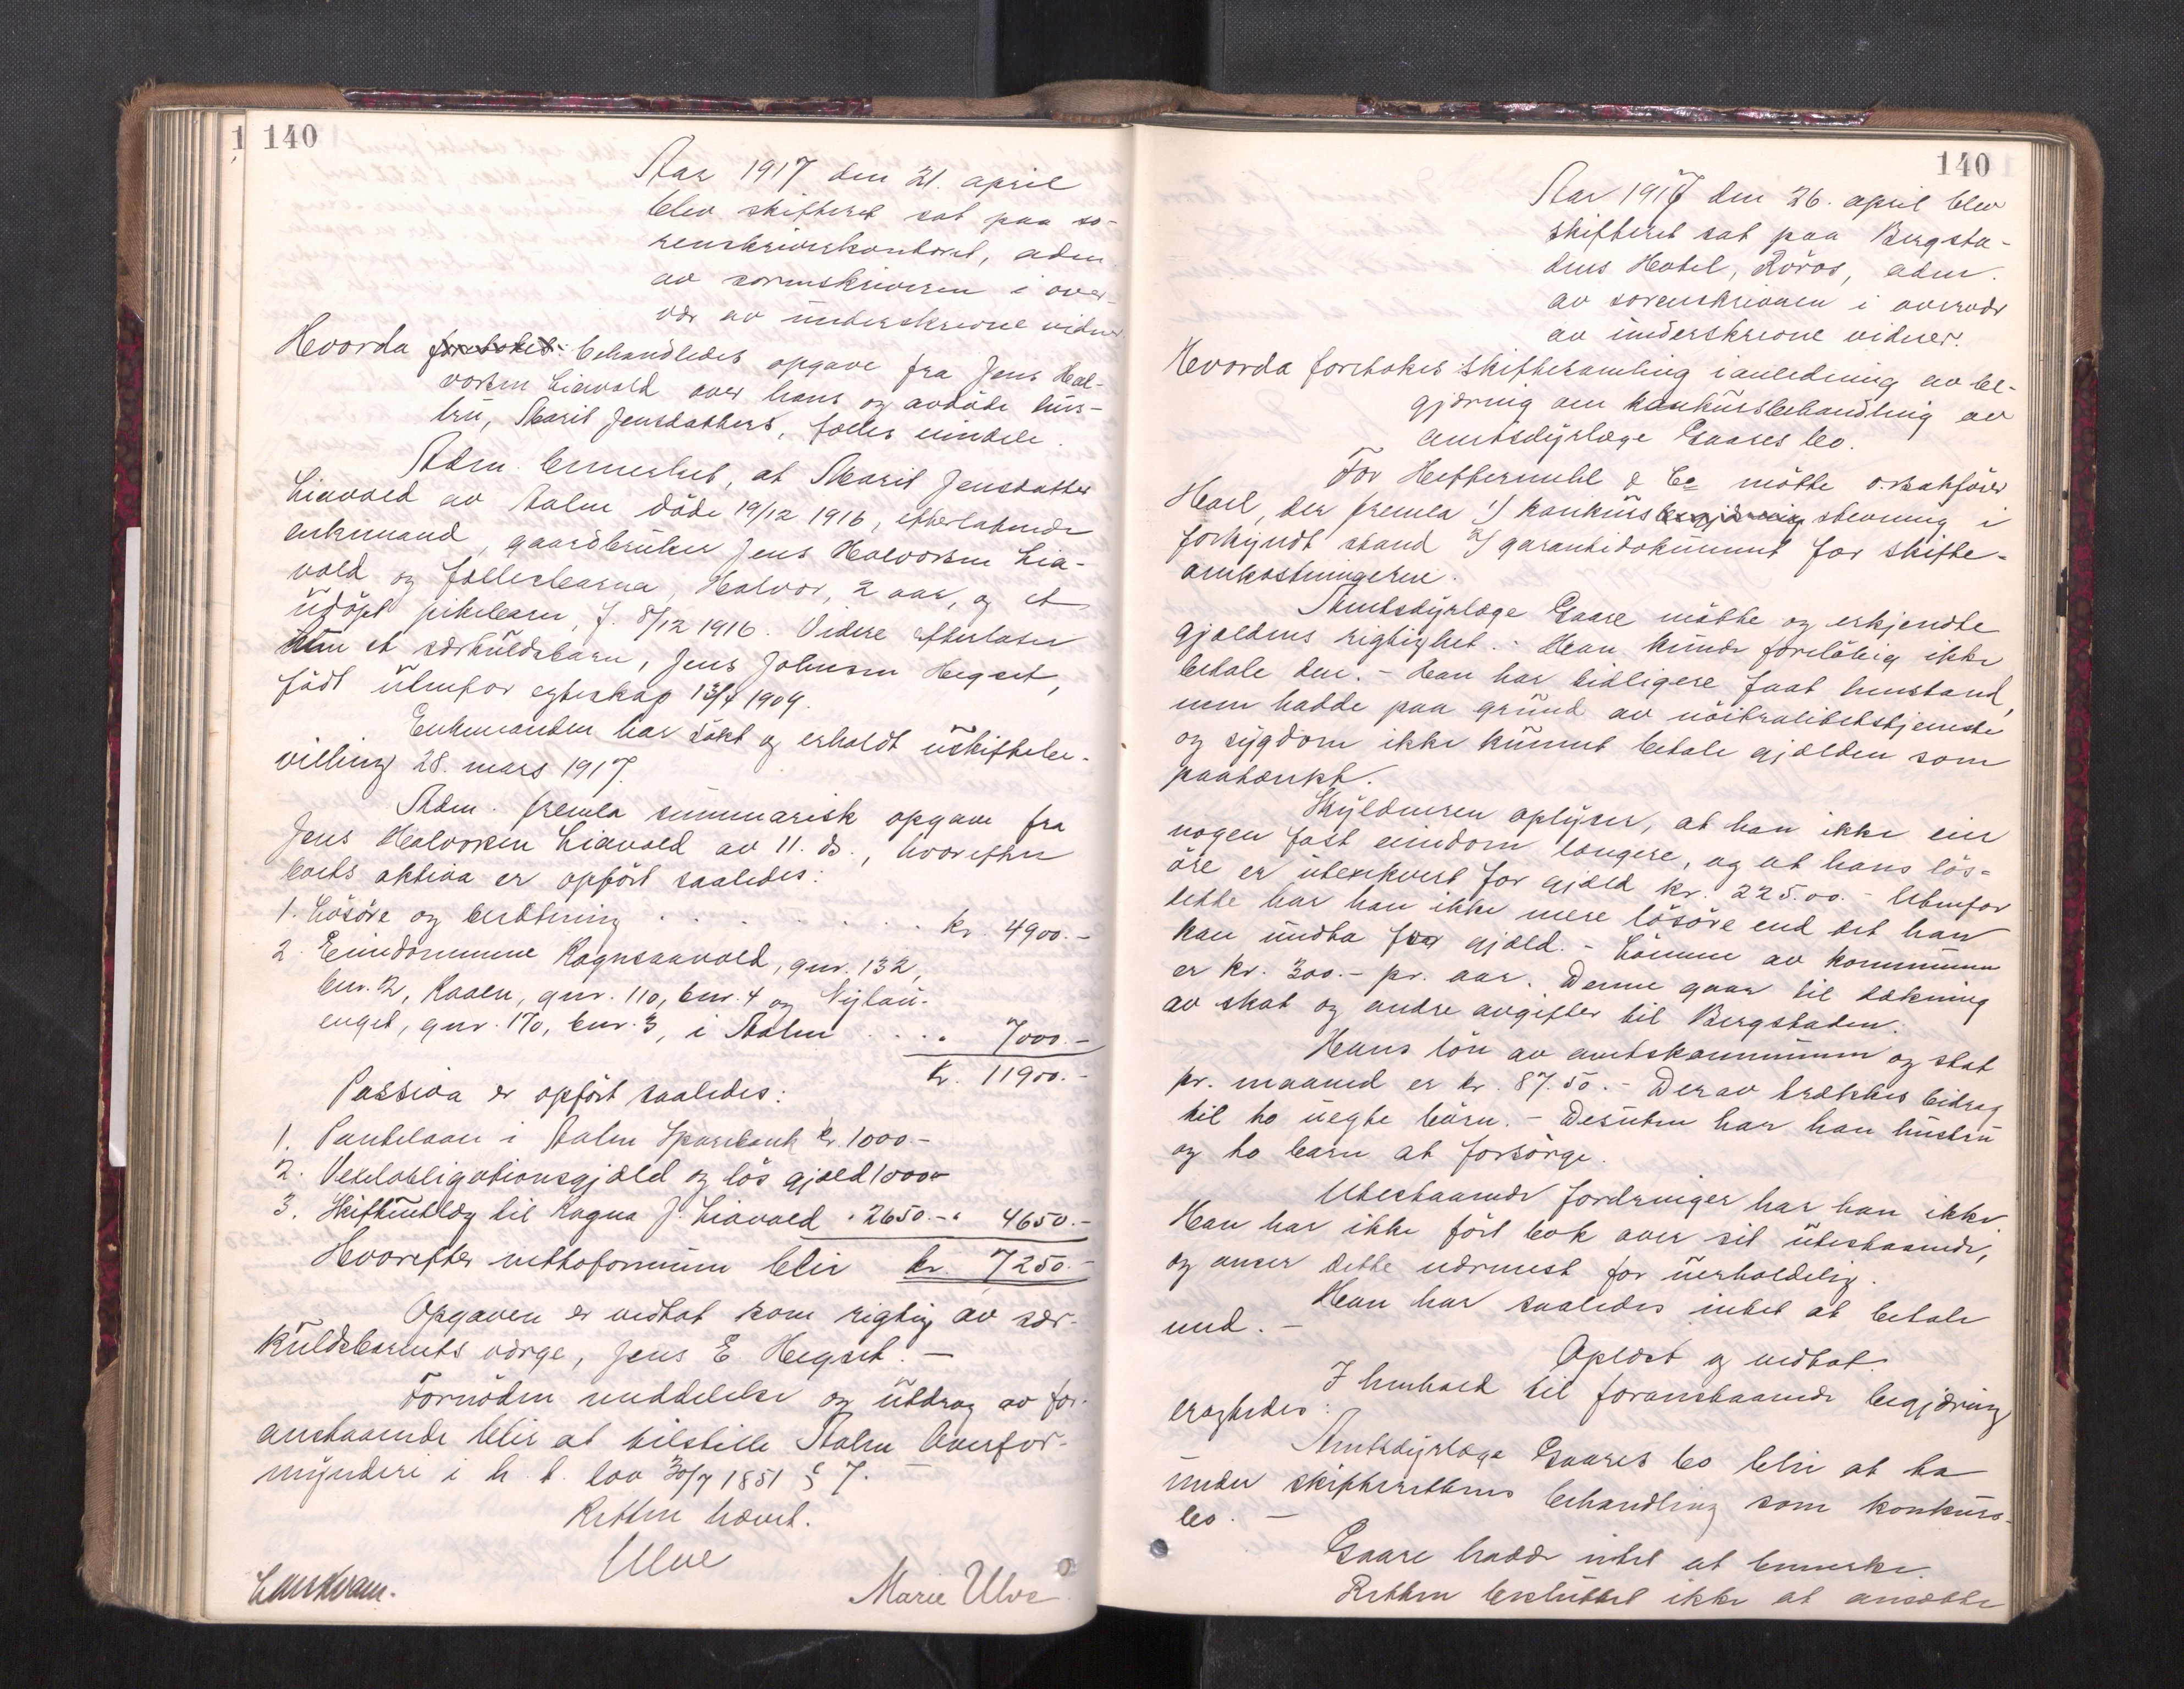 140
Aar 1917 den 21. april
blev skifteret sat paa so-
renskriverkontoret, adm.
av sorenskriveren i over-
vær av underskrevne vidner.
Hvorda foretokes behandledes opgave fra Jens Hal-
vorsen Liavold over hans og avdöde hus-
tru, Marit Jensdatters, fælles eiendele.
Adm. bemerket, at Marit Jensdatter
Liavold av Aalen döde 19/12 1916, efterlatende
enkemand, gaardbruker Jens Halvorsen Lia-
vold og fællesbarna, Halvor, 2 aar, og et
udöpt pikebarn, f. 8/12 1916. Videre efterlater
hun et særkuldsbarn, Jens Johnsen Hegset,
födt utenfor egteskap 13/4 1909.
Enkemanden har sökt og erholdt uskiftebe-
villing 28. mars 1917.
Adm. fremla summarisk opgave fra
Jens Halvorsen Liavold av 11. ds., hvorefter
boets aktiva er opfört saaledes:
1. Lösöre og besætning . . . . . . . . kr. 4900.-
2. Eiendommene Ragnsaavold, gnr. 132,
bnr. 2, Raaen, gnr. 110, bnr. 4 og Nylau-
enget, gnr. 170, bnr. 3, i Aalen . . . . 7000.-
Kr. 11900.-
Passiva er opfört saaledes:
1. Pantelaan i Aalen Sparebank kr. 1000.-
2. Vexelobligationsgjæld og lös gjæld 1000.-
3. Skifteutlæg til Ragna J. Liavold " 2650.- " 4650.-
Hvorefter nettoformuen blir kr. 7250.-
Opgaven er vedtat som rigtig av sær-
kuldsbarnets værge, Jens E. Hegset. -
Fornöden meddelelse og utdrag av for-
anstaaende blir at tilstille Aalen Overfor-
mynderi i h. t. lov 30/7 1851 § 7. -
Retten hævet.
Ulve
Marie Ulve
140
Aar 1917 den 26. april blev
skifteret sat paa Bergsta-
dens Hotel, Röros, adm.
av sorenskriveren i overvær
av underskrevne vidner.
Hvorda foretokes skiftesamling i anledning av be-
gjæring om konkursbehandling av
amtsdyrlæge Gaares bo.
For Heftermehl & Co mötte o.r.sakförer
Hoel, der fremla 1) konkursbegjæring stevning i
forkyndt stand 2) garantidokument for skifte-
omkostningerne.
Amtsdyrlæge Gaare mötte og erkjendte
gjældens rigtighet. - Han kunde forelöbig ikke
betale den. - Han har tidligere faat henstand,
men hadde paa grund av nöitralitetstjeneste
og sygdom ikke kunnet betale gjælden som
paatænkt.
Skyldneren oplyser, at han ikke eier
nogen fast eiendom længere, og at hans lös-
öre er utexekvert for gjæld kr. 225.00. - Utenfor
dette har han ikke mere lösöre end det han
kan undta for gjæld. - Lönnen av kommunen
er kr. 300.- pr. aar. Denne gaar til dækning
av skat og andre avgifter til Bergstaden.
Hans lön av amtskommunen og stat
pr. maaned er kr. 87.50. - Derav trækkes bidrag
til to uegte börn. - Desuten har han hustru
og to barn at forsörge.
Utestaaende fordringer har han ikke.
Han har ikke fört bok over sit utestaaende,
og anser dette nærmest for uerholdelig.
Han har saaledes intet at betale
med. -
Oplæst og vedtat.
I henhold til foranstaaende begjæring
eragtedes:
Amtsdyrlæge Gaares bo blir at ta
under skifterettens behandling som konkurs-
bo. -
Gaare hadde intet at bemerke.
Retten besluttet ikke at ansætte